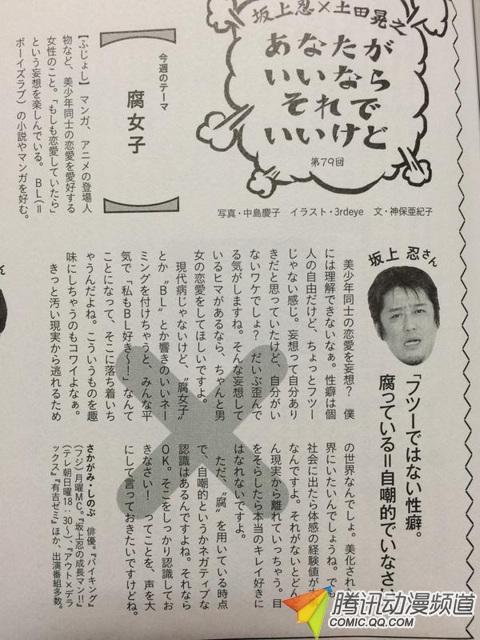 坂上忍×土田晃之
あなたが
いいなら
それで
いいけど
第79回
写真・中島慶子 イラスト・3rdeye 文・神保亜紀子
今週のテーマ
腐女子
【ふじょし】マンガ、アニメの登場人
物など、美少年同士の恋愛を愛好する
女性のこと。「もしも恋愛していたら」
という妄想を楽しんでいる。BL(＝
ボーイズラブ)の小説やマンガを好む。
坂上 忍さん
「フツーではない性癖。
腐っている＝自嘲的でいなさ
美少年同士の恋愛を妄想？ 僕
には理解できないなぁ。性癖は個
人の自由だけど、ちょっとフツー
じゃない感じ。妄想って自分あり
きだと思っていたけど、自分がい
ないワケでしょ？ だいぶ歪んで
る気がしますね。そんな妄想して
いるヒマがあるなら、ちゃんと男
女の恋愛をしてほしいですよ。
現代病じゃないけど、“腐女子”
とか“BL”とか響きのいいネー
ミングを付けちゃうと、みんな平
気で「私もBL好き〜！」なんて
ことになって、そこに落ち着いち
ゃうんだよね。こういうものを趣
味にしちゃうのもコワイよなぁ。
きっと汚い現実から逃れるため
の世界なんでしょ。美化され
界にいたいんでしょうね。でも
社会に出たら体感の経験値が
なんですよ。それがないとどん
ん現実から離れていっちゃう。目
をそらしたら本当のキレイ好きに
はなれないですよ。
ただ、“腐”を用いている時点
で、自嘲的というかネガティブな
認識はあるんですよね。それなら
OK。そこをしっかり認識してお
きなさい！ ってことを、声を大
にして言っておきたいですけどね。
さかがみ・しのぶ 俳優。『バイキング』
(フジ)月曜MC。『坂上忍の成長マン!!』
(テレ朝日曜18：30〜)、『アウト×デラ
ックス』『有吉ゼミ』ほか、出演番組多数。
腾讯动漫频道
COMIC.QQ.COM